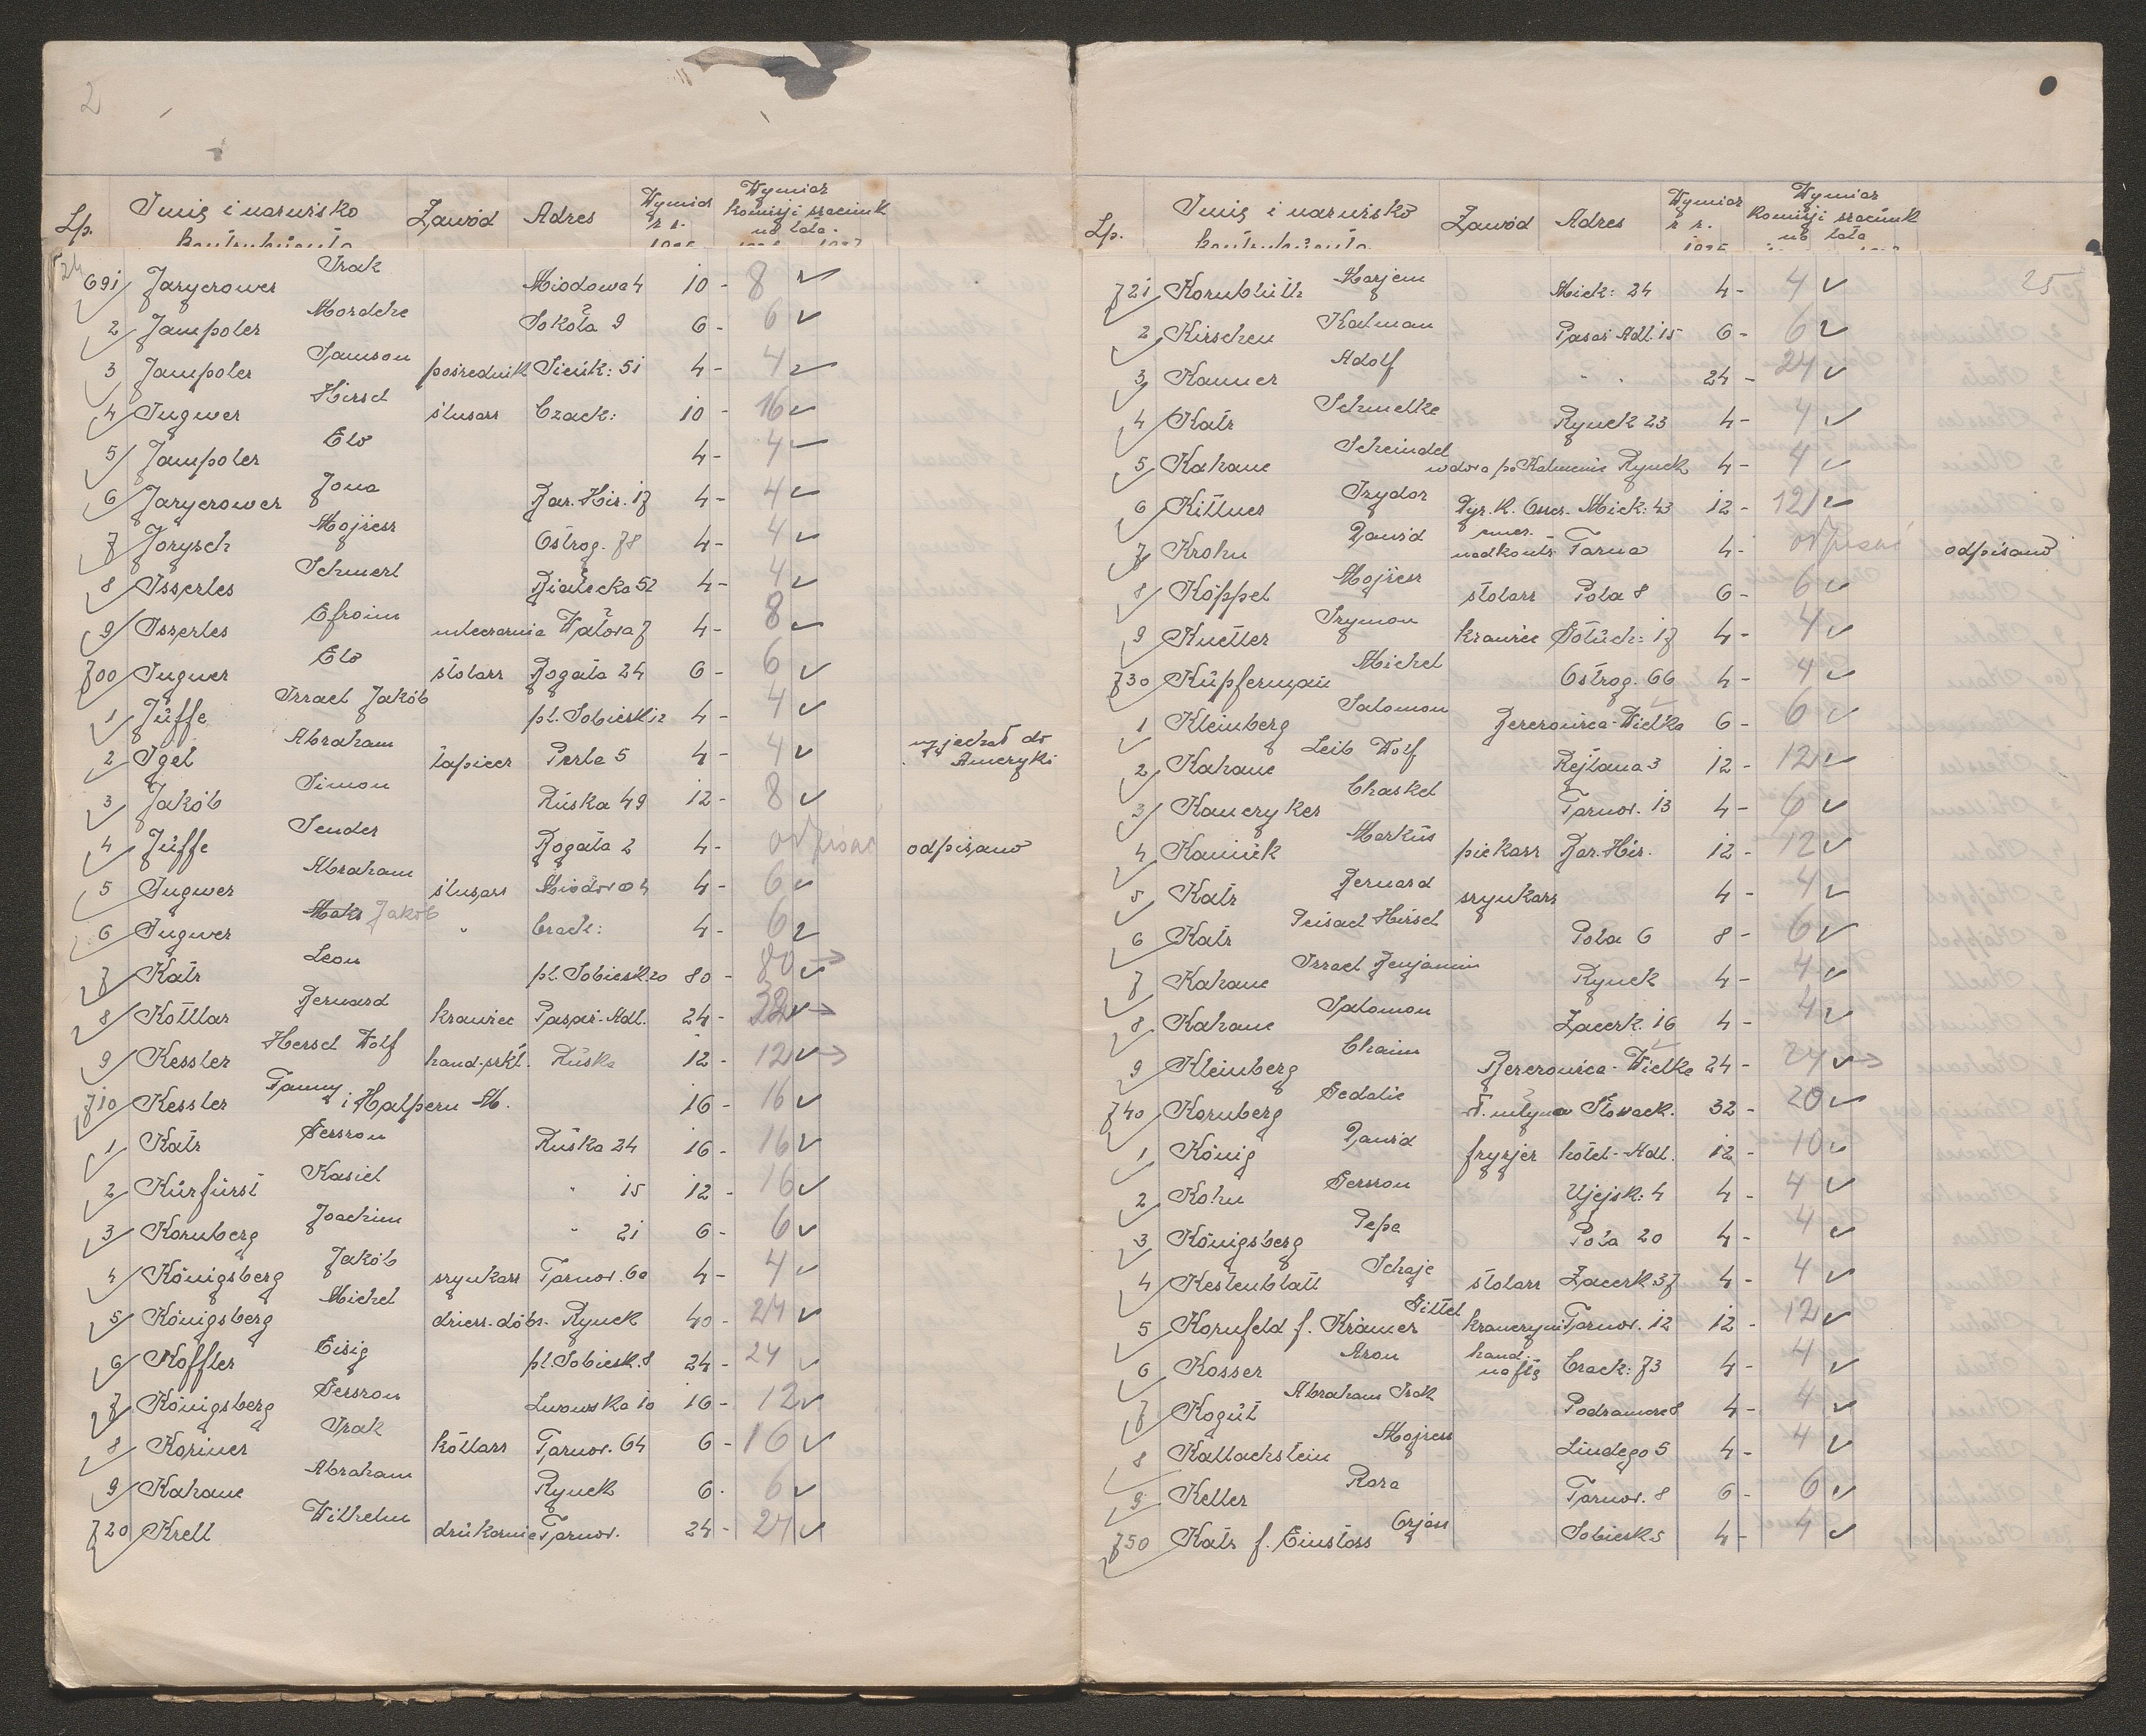 2
Lp. Imię i nazwisko Zawód Adres Wymiar z r. Wymiar komisji szacunk. na lata
24
691 Jaryczower Izak Miodowa 4 10 - 8
2 Jampoler Mordche Sokoła 9 6 - 6
3 Jampoler Samson pośrednik Sienk: 51 4 - 4
4 Ingwer Hirsch ślusarz Czack: 10 - 16
5 Jampoler Elo 4 - 4
6 Jaryczower Jona Bar. Hir. 17 4 - 4
7 Jorysch Mojżesz Ostrog. 78 4 - 4
8 Isserles Schmerl Białecka 52 4 - 4
9 Isserles Efroim mleczarnia Wałowa 7 4 - 8
700 Ingwer Elo stolarz Rogata 24 6 - 6
1 Juffe Izrael Jakób pl. Sobiesk 12 4 - 4
2 Igel Abraham tapicer Perla 5 4 - 4 wyjechał do Ameryki
3 Jakób Simon Ruska 49 12 - 8
4 Juffe Sender Rogata 2 4 - odpisać odpisano
5 Ingwer Abraham ślusarz Miodowa 4 4 - 6
6 Ingwer Maks Jakób " Czack: 4 - 6
7 Katz Leon pl. Sobiesk. 20 80 - 80
8 Kottlar Bernard krawiec Pasaż-Adl. 24 - 32
9 Kessler Hersch Wolf hand. szkł. Ruska 12 - 12
710 Kessler Fanny i Halpern M. 16 - 16
1 Katz Gerszon Ruska 24 16 - 16
2 Kurfürst Kasiel " 15 12 - 16
3 Kornberg Joachim " 21 6 - 6
4 Königsberg Jakób szynkarz Tarnow. 60 4 - 4
5 Königsberg Michel dzierż. dóbr. Rynek 40 - 24
6 Koffler Eisig pl. Sobiesk. 8 24 - 24
7 Königsberg Gerszon Lwowska 10 16 - 12
8 Koriner Izak kotlarz Tarnow. 64 6 - 16
9 Kahane Abraham Rynek 6 - 6
720 Krell Wilhelm drukarnia Tarnow. 24 - 24
Lp. Imię i nazwisko Zawód Adres Wymiar z r. Wymiar komisji szacunk. na lata
25
721 Kornblüth Marjem Mick: 24 4 - 4
2 Kirschen Kalman Pasaż Adl. 15 6 - 6
3 Kanner Adolf " " 24 - 24
4 Katz Schmelke Rynek 23 4 - 4
5 Kahane Scheindel wdowa po Kalmanie Rynek 4 - 4
6 Kittner Izydor Dyr. K. Oszcz. Mick: 43 12 - 12
7 Krohn Dawid emer. nadkontr. Tarna 4 - odpisać odpisano
8 Köppel Mojżesz stolarz Pola 8 6 - 6
9 Knetler Szymon krawiec Gołuch: 17 4 - 4
730 Kupferman Michel Ostrog. 66 4 - 4
1 Kleinberg Salomon Berezowica-Wielka 6 - 6
2 Kahane Leib Wolf Rejtana 3 12 - 12
3 Kanczyker Chaskel Tarnow. 13 4 - 6
4 Kaminik Markus piekarz Bar. Hir. 12 - 12
5 Katz Bernard szynkarz 4 - 4
6 Katz Peisach Hirsch Pola 6 8 - 6
7 Kahane Izrael Benjamin Rynek 4 - 4
8 Kahane Salomon Zacerk. 16 4 - 4
9 Kleinberg Chaim Berezowica-Wielka 24 - 24
740 Kornberg Gedalie d. młyna Słowack. 32 - 20
1 König Dawid fryzjer hotel-Adl. 12 - 10
2 Kohn Gerszon Ujejsk: 4 4 - 4
3 Königsberg Pepa Pola 20 4 - 4
4 Kestenblatt Schaje stolarz Zacerk. 37 4 - 4
5 Kornfeld f. Krämer Gittel Tarnow. 12 12 - 12
6 Kosser Aron hand. naftą Czack: 73 4 - 4
7 Kogut Abraham Izak Podzamcze 8 4 - 4
8 Kallachstein Mojżesz Lindego 5 4 - 4
9 Keller Roza Tarnow. 8 6 - 6
750 Katz f. Einstoss Sobiesk 5 4 - 4